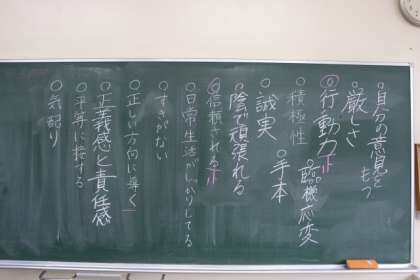 ○自分の意見をもつ
○厳しさ
◎行動力 正
○臨機応変
○積極性
○手本
○誠実
○陰で頑張れる
◎信頼される 正
○日常生活がしっかりしてる
○すきがない
○正しい方向に導く
○正義感と責任感
○平等に接する
○気配り